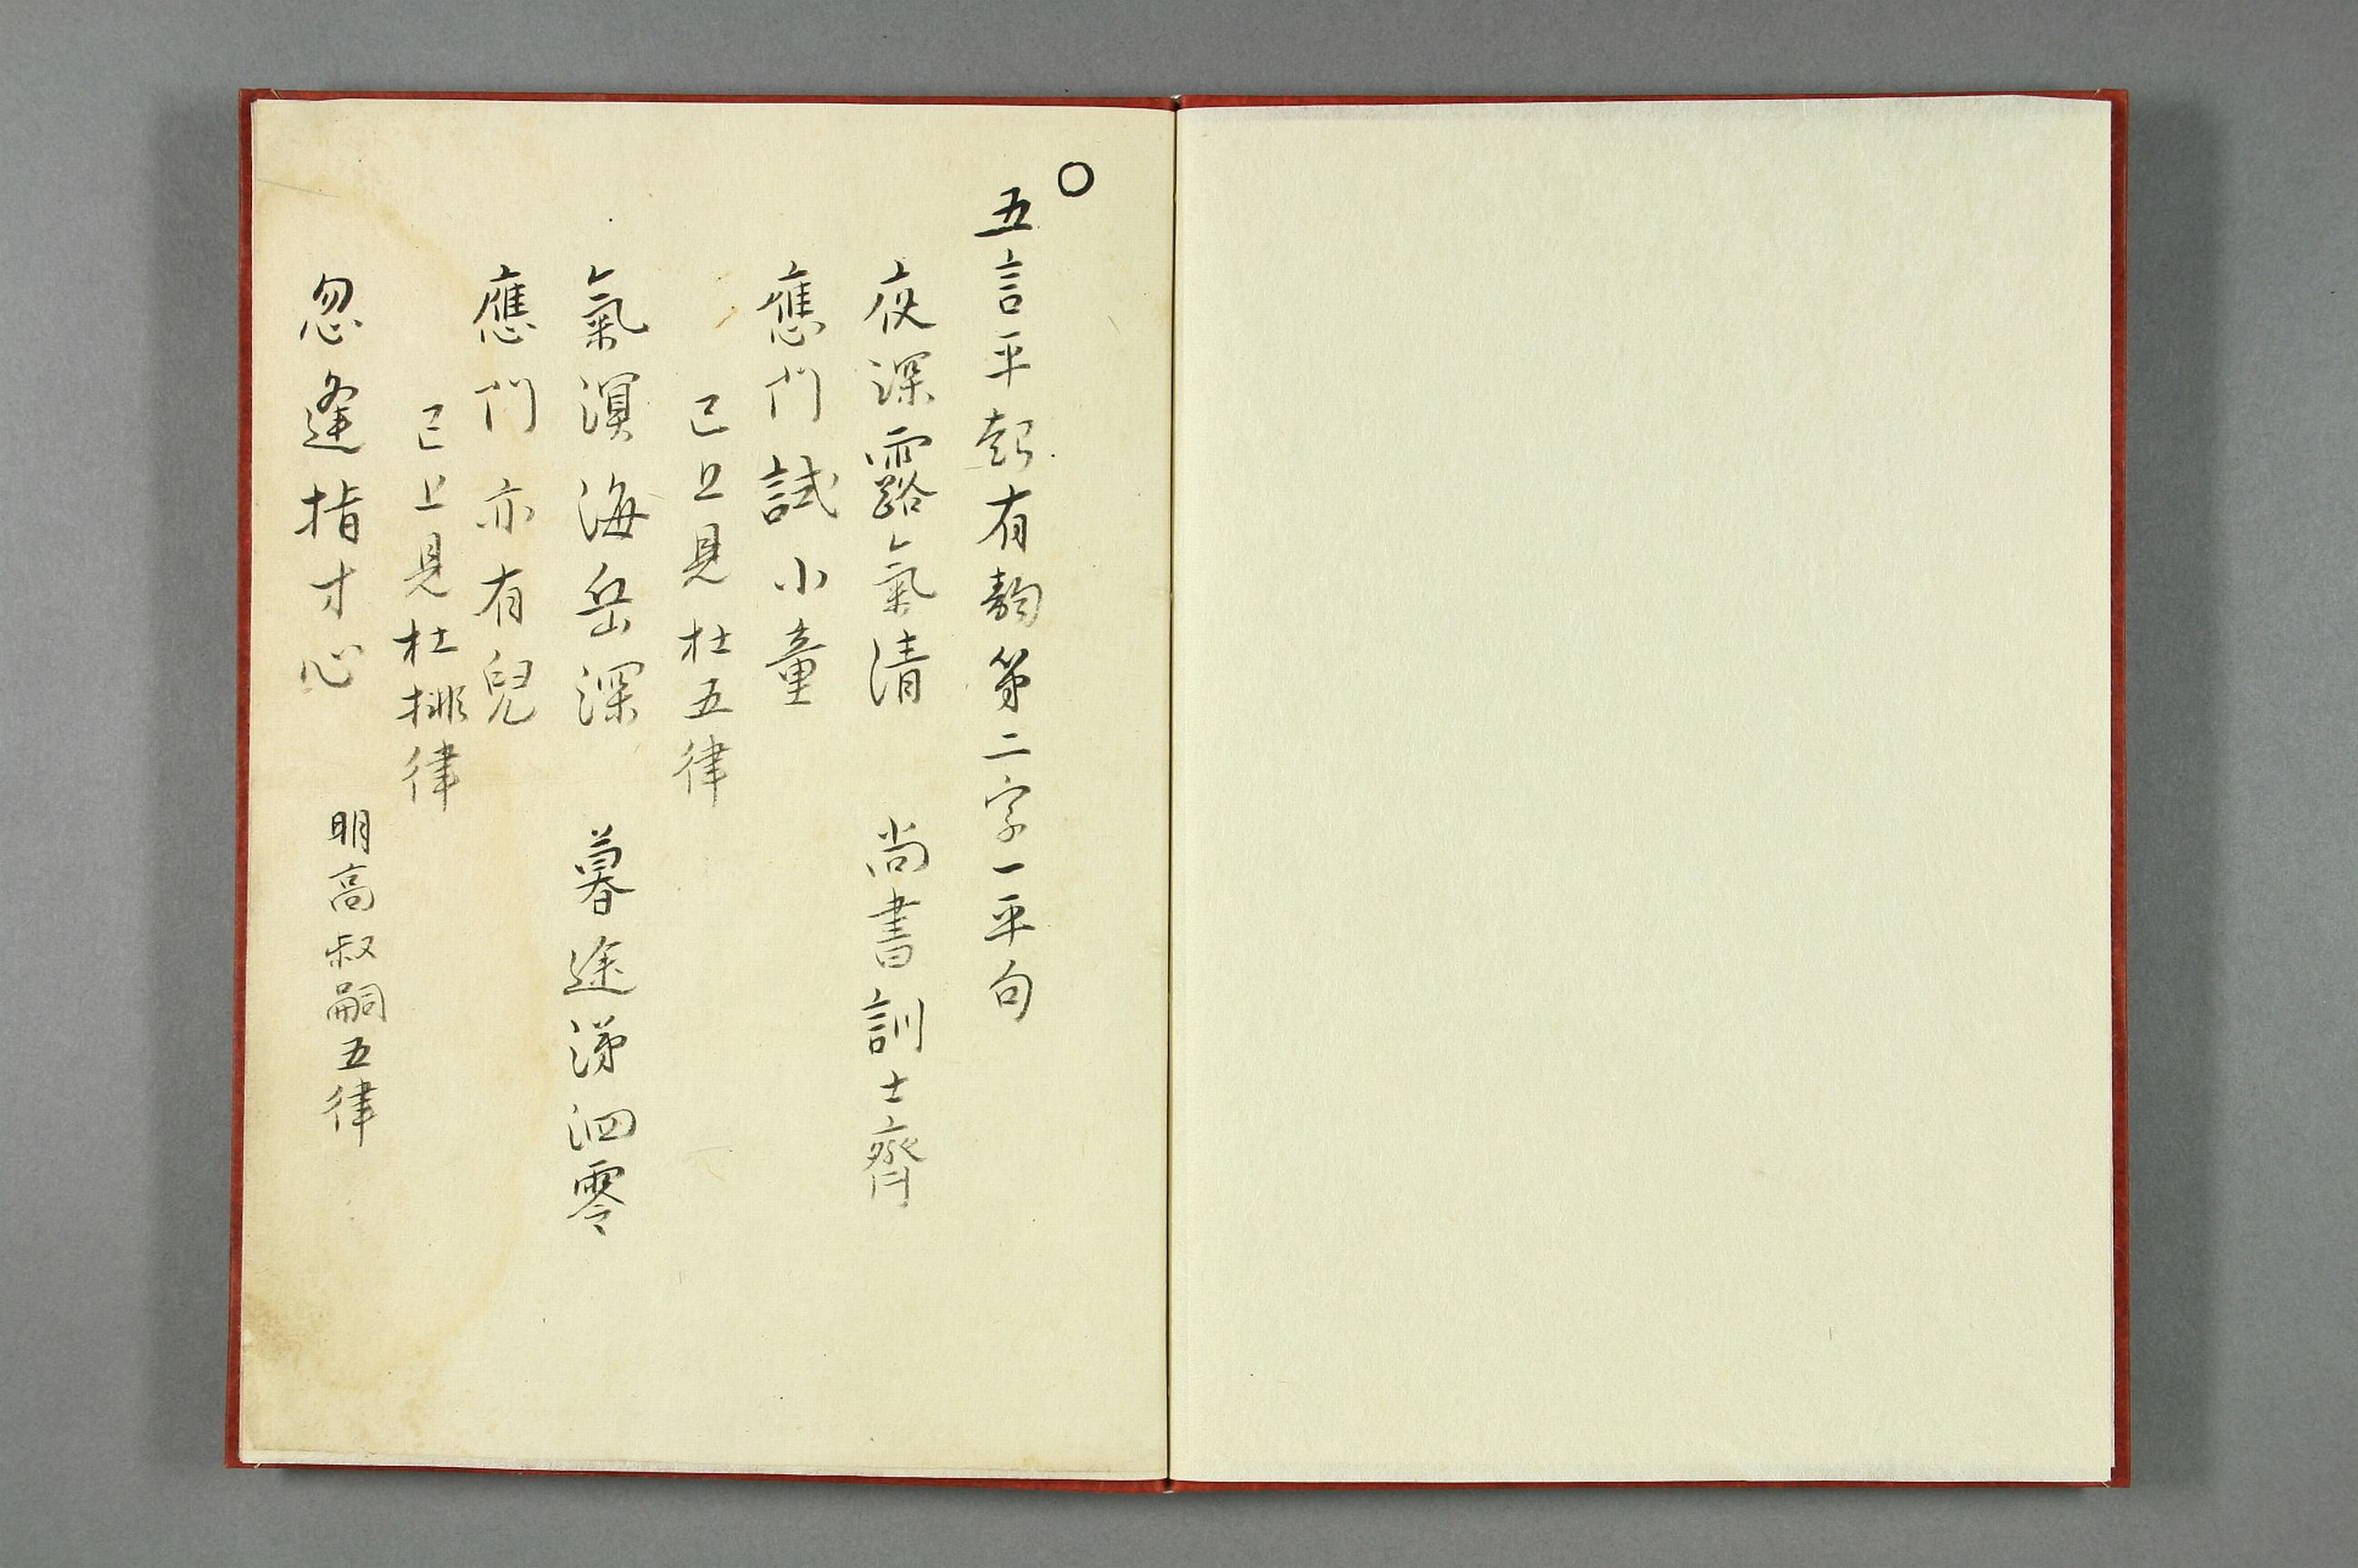 ○
五言平起有韵第二字一平句
夜深露氣清　尚書訓士齊
應門試小童
已上見杜五律
氣溟海岳深　暮途涕泗零
應門亦有兒
已上見杜排律
忽逢指才心　明高叔嗣五律